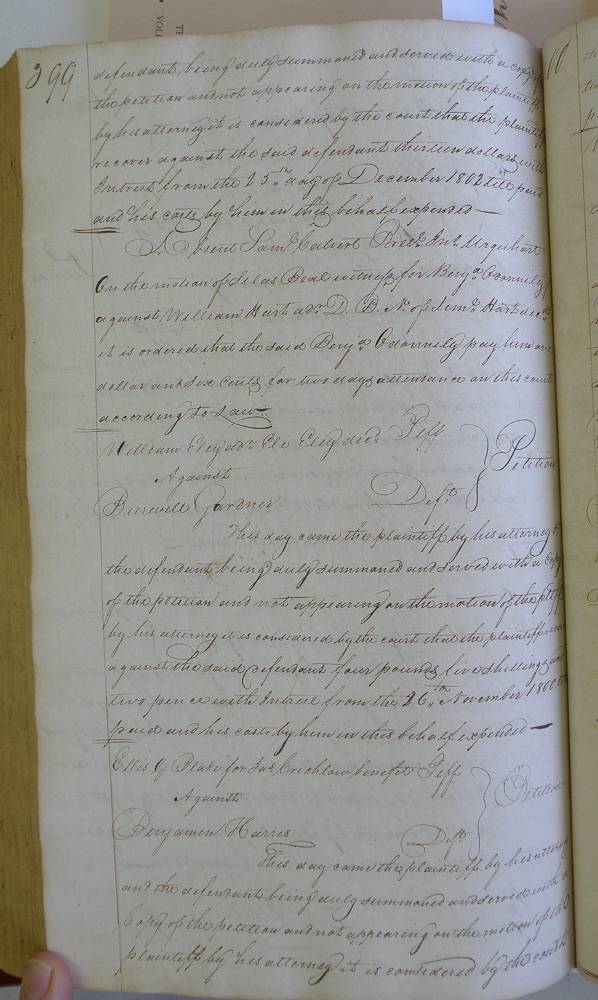 399
defendant being duly summoned and served with a copy of
the petition and not appearing on the motion of the plaintiff
by his attorney it is considered by the court that the plaintiff
recover against the said defendant thirteen dollars with
Interest from the 25th day of December 1802 till paid
and his costs by him in this behalf expended —
Absent Saml Calvert Pres. Jno Urquhart
On the motion of Silas Beal witness for Benja Odonnely
against William Hart adr D. B. N. of Hart decd
it is ordered that the said Benja Odonnely pay him one
dollar and six cents for two days attendance on this court
according to Law
William Eley adr Ele Eley decd Plff
Against
Petition
Burwell Gardner Deft
This day came the plaintiff by his attorney &
the defendant being duly summoned and served with a Copy
of the petition and not appearing on the motion of the pltff
by his attorney it is considered by the court that the plaintiff recover
against the said defendant four pounds five shillings and
two pence with Interest from the 26th November 1800 till
paid and his costs by him in this behalf expended —
Ellis G Blake for Jas Crichlow benefit Plff
Against
Petition
Benjamen Harris Deft
This day came the plaintiff by his attorney
and the defendant being duly summoned and served with a
Copy of the petition and not appearing on the motion of the
plaintiff by his attorney it is considered by the court